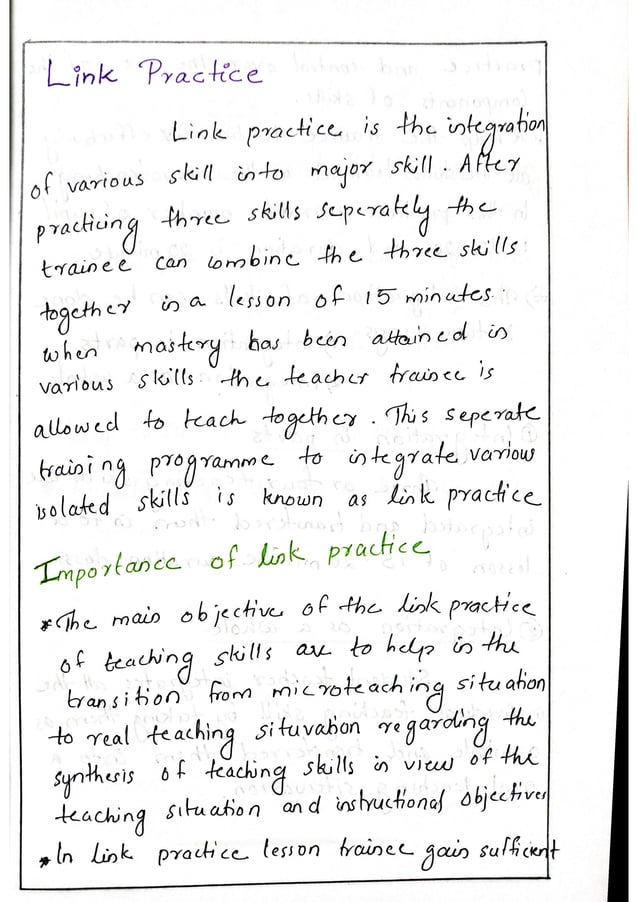 Link Practice
Link practice is the integration
of various skill into major skill. After
practicing three skills seperately the
trainee can combine the three skills
together in a lesson of 15 minutes.
when mastery has been attained in
various skills the teacher trainee is
allowed to teach together. This seperate
training programme to integrate various
isolated skills is known as link practice
Importance of link practice
* The main objective of the link practice
of teaching skills are to help in the
transition from microteaching situation
to real teaching situvation regarding the
synthesis of teaching skills in view of the
teaching situation and instructional objectives
* In Link practice lesson trainee gain sufficient